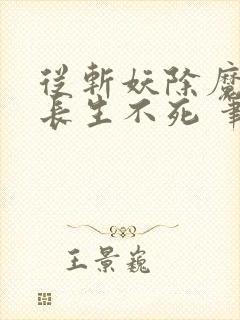 從斬妖除魔
長生不死 筆
王景巍